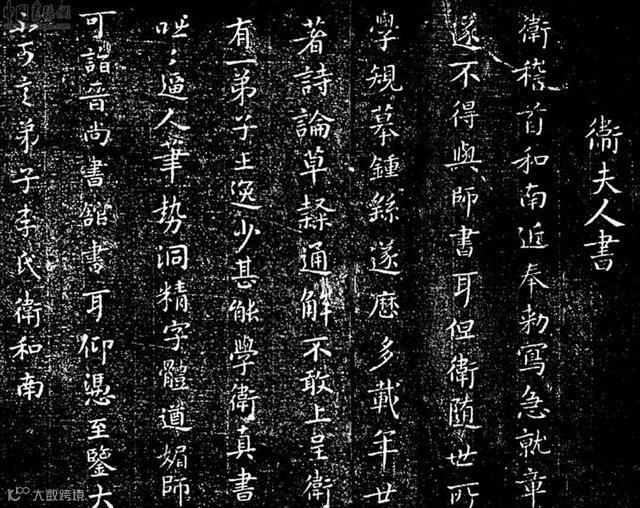 衛夫人書
衛稽首和南近奉勅寫急就章
遂不得與師書耳但衛隨世所
學規摹鍾繇遂歷多載年廿
著詩論草隸通解不敢上呈衛
有一弟子王逸少甚能學衛真書
咄〻逼人筆勢洞精字體遒媚師
可詣晉尚書館書耳仰憑至鑒大
不可言弟子李氏衛和南
大数跨境